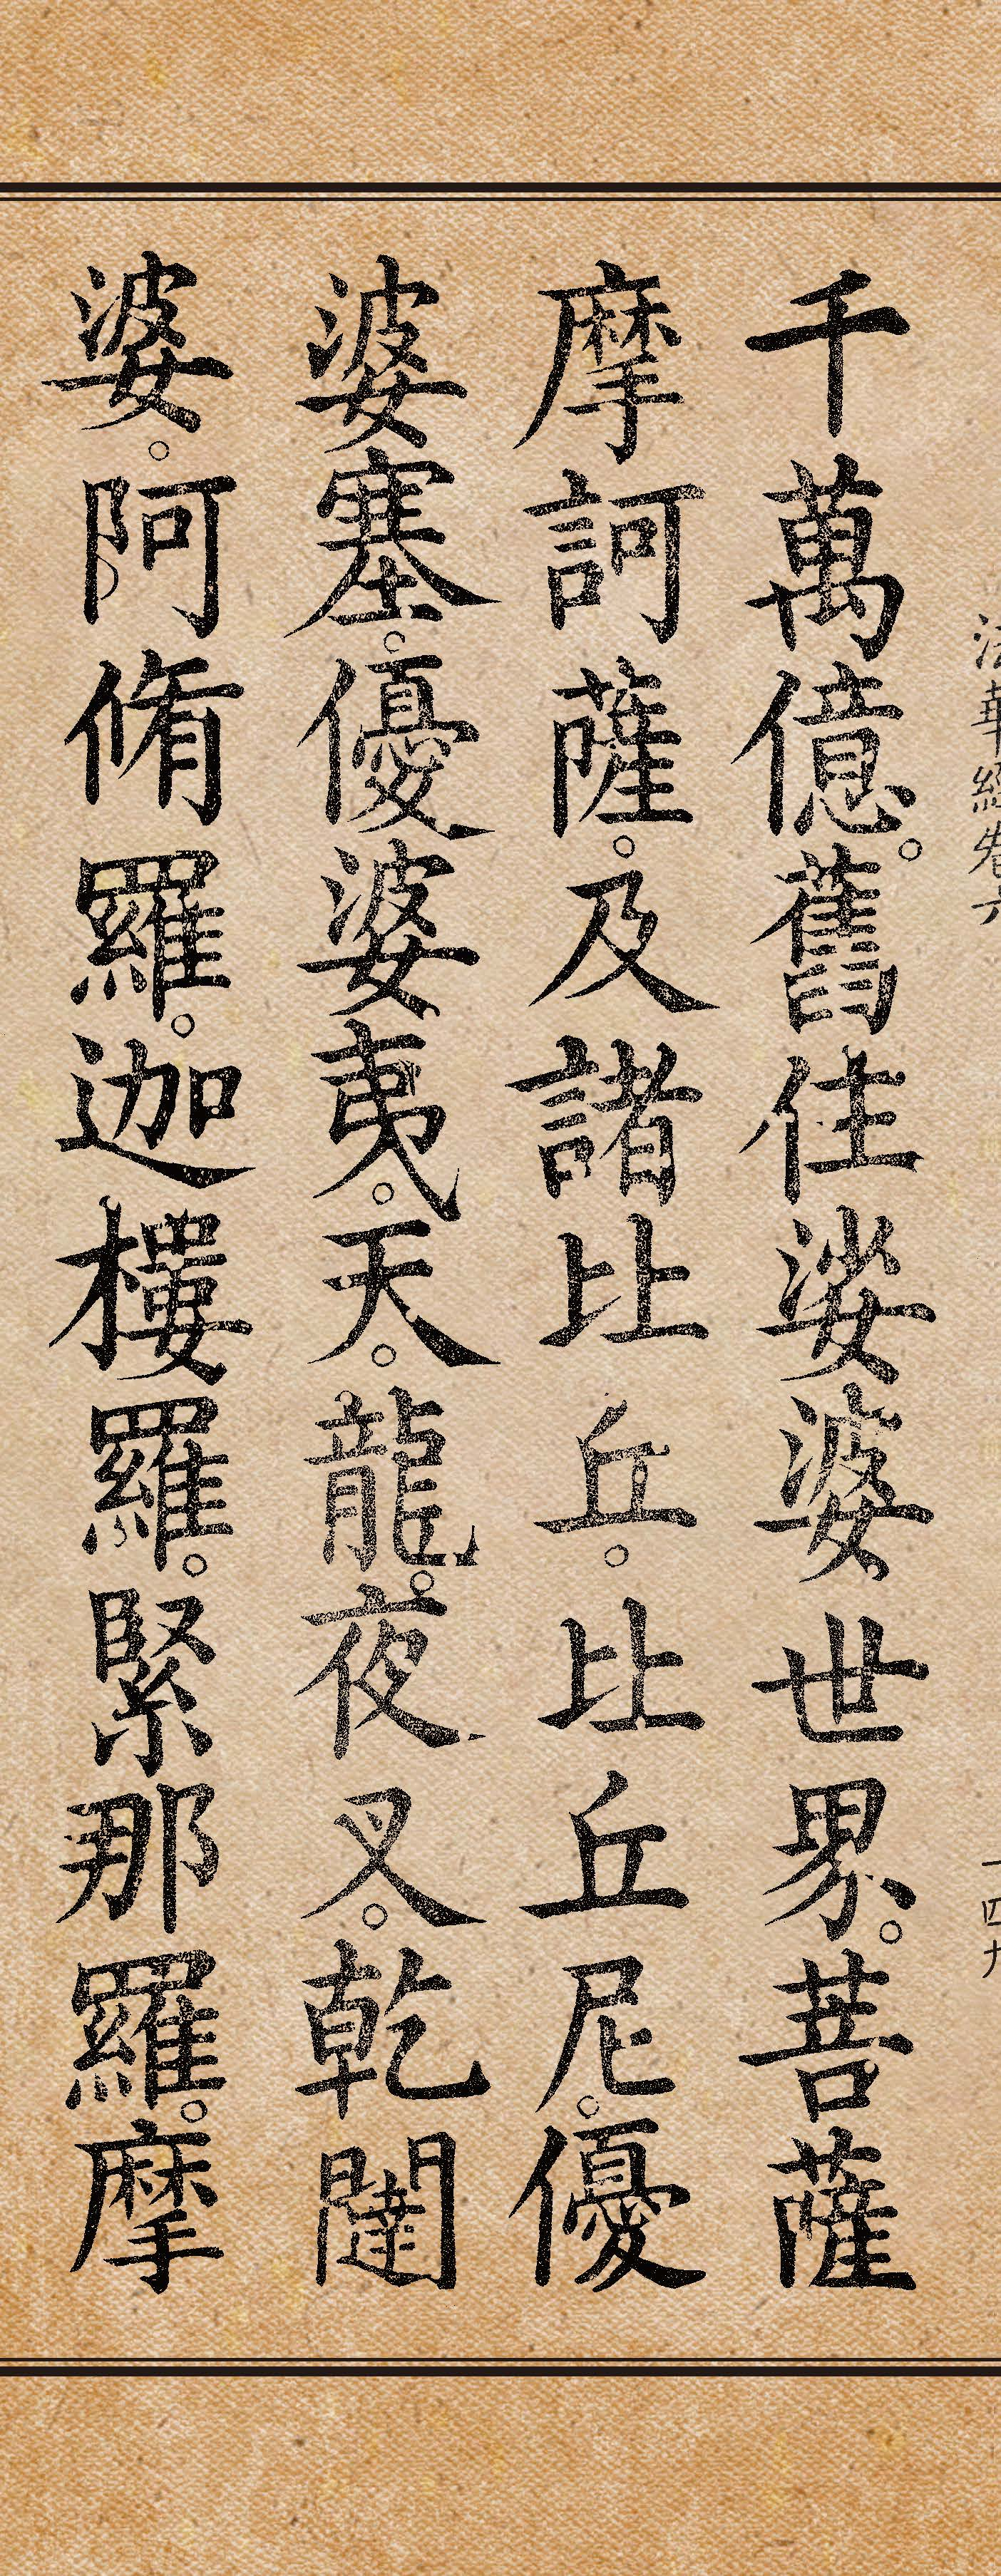 法華經卷六 一四九
千萬億。舊住娑婆世界。菩薩
摩訶薩。及諸比丘。比丘尼。優
婆塞。優婆夷。天。龍。夜叉。乾闥
婆。阿脩羅。迦樓羅。緊那羅。摩